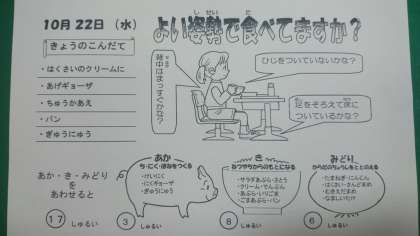 10月22日（水）
よい姿勢で食べてますか？
しせい
た
きょうのこんだて
・はくさいのクリームに
・あげギョーザ
・ちゅうかあえ
・パン
・ぎゅうにゅう
背中はまっすぐかな？
ひじをついていないかな？
足をそろえて床に
ついているかな？
あか・き・みどり
を
あわせると
17 しゅるい
あか
ち・にく・ほねをつくる
・けいにく
・にくギョーザ
・ぎゅうにゅう
3 しゅるい
き
ねつやちからのもとになる
・サラダあぶら・さとう
・クリーム・でんぷん
・あぶら・いりごま
・ごまあぶら・パン
8 しゅるい
みどり
からだのちょうしをととのえる
・たまねぎ・にんじん
・はくさい・さんどまめ
・むきえだまめ
6 しゅるい